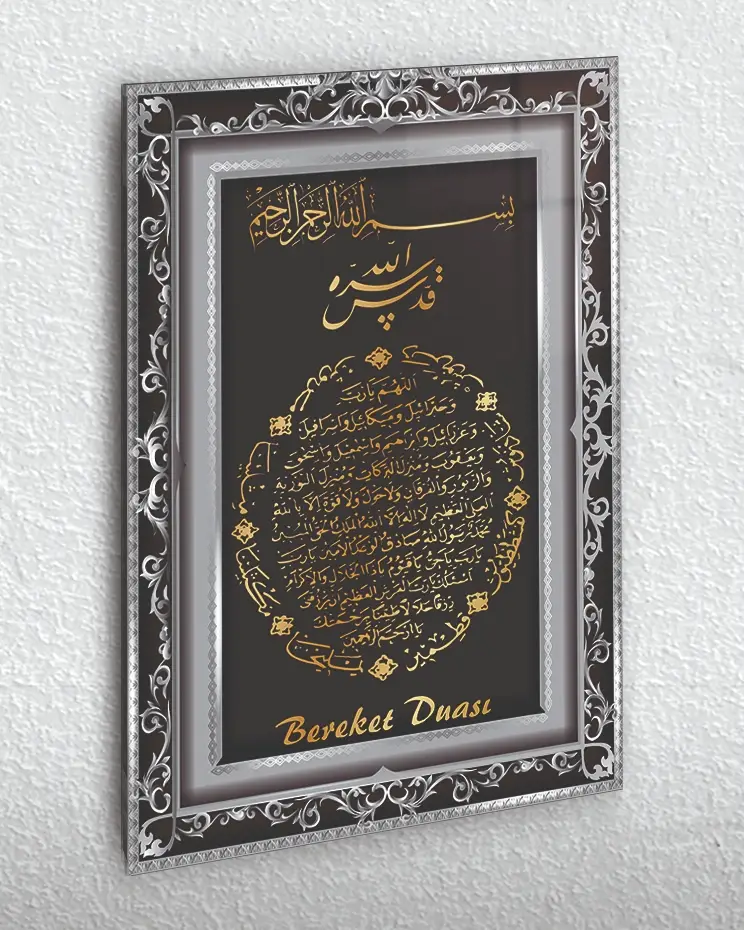 بسم الله الرحمن الرحيم
قدس الله سره
اللهم يا رب
وجبرائيل وميكائيل واسرافيل
وعزرائيل وابراهيم واسمعيل واسحق
ويعقوب ومنزل البركات ومنزل التورية
والزبور والفرقان ولا حول ولا قوة الا بالله
العلي العظيم لا اله الا الله الملك الحق المبين
محمد رسول الله صادق الوعد الامين يا رب
يا رب يا حي يا قيوم يا ذا الجلال والاكرام
اسئلك يا رب العرش العظيم ان ترزقني
رزقا حلالا طيبا برحمتك
يا ارحم الراحمين
يمليخا
مكسلينا
كفشططيوش
قطمير
Bereket Duası